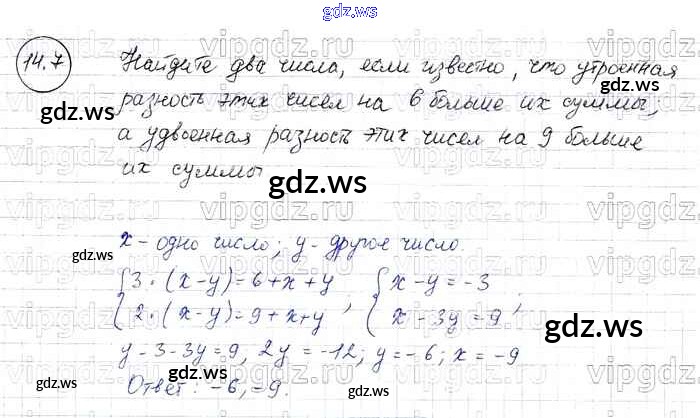 gdz.ws
14.7 Найдите два числа, если известно, что утроенная
разность этих чисел на 6 больше их суммы;
а удвоенная разность этих чисел на 9 больше
их суммы
x - одно число; y - другое число.
{3·(x-y)=6+x+y {x-y=-3
{2·(x-y)=9+x+y; {x-3y=9;
y-3-3y=9, 2y=-12; y=-6; x=-9
Ответ: -6, -9.
vipgdz.ru vipgdz.ru vipgdz.ru
gdz.ws
gdz.ws
gdz.ws
gdz.ws
gdz.ws
gdz.ws
gdz.ws
gdz.ws